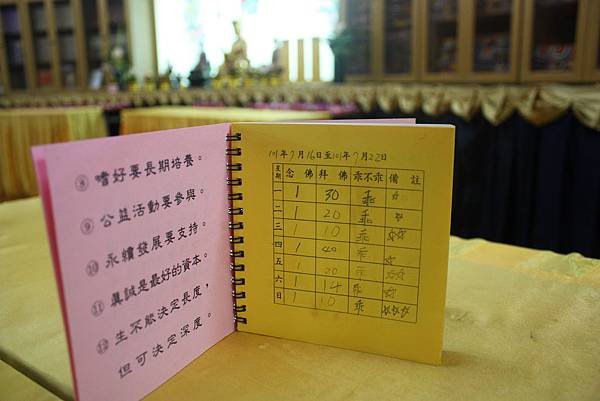 ⑧ 嗜好要長期培養。
⑨ 公益活動要參與。
⑩ 永續發展要支持。
⑪ 真誠是最好的資本。
⑫ 生不能決定長度，
但可決定深度。
101年7月16日至101年7月22日
星期 念佛 拜佛 乖不乖 備註
一 1 30 乖 ☆
二 1 20 乖 ☆
三 1 10 乖 ☆☆
四 1 40 乖 ☆
五 1 20 乖 ☆
六 1 14 乖 ☆
日 1 10 乖 ☆☆☆